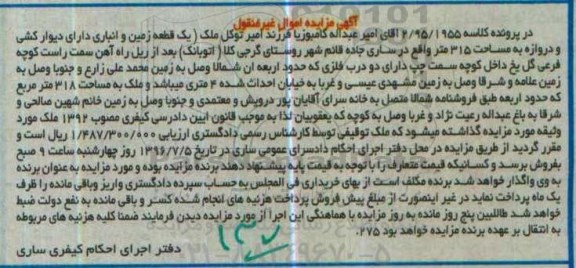 آگهی مزایده اموال غیرمنقول
در پرونده کلاسه ۲/۹۵/۱۹۵۵ آقای امیر عبداله کامبوزیا فرزند امیر توکل ملک ( یک قطعه زمین و انباری دارای دیوار کشی
و دروازه به مساحت ۳۱۵ متر واقع در ساری جاده قائم شهر روستای گرجی کلا ( اتوبانک) بعد از ریل راه آهن سمت راست کوچه
فرعی گل یخ داخل کوچه سمت چپ دارای دو درب فلزی که حدود اربعه ان شمالا وصل به زمین محمد علی زارع و جنوبا وصل به
زمین علامه و شرقا وصل به زمین مشهدی عیسی و غربا به خیابان احداث شده ۴ متری میباشد و ملک به مساحت ۳۱۸ متر مربع
که حدود اربعه طبق فروشنامه شمالا متصل به خانه سرای آقایان پور درویش و معتمدی و جنوبا وصل به زمین خانم شهین صالحی و
شرقا به باغ عبداله رعیت نژاد و غربا وصل به کوچه که یعقوبیان لذا به موجب قانون ایین دادرسی کیفری مصوب ۱۳۹۲ ملک مورد
وثیقه مورد مزایده گذاشته میشود که ملک توقیفی توسط کارشناس رسمی دادگستری ارزیابی ۱/۴۸۷/۳۰۰/۰۰۰ ریال است و
مقرر گردید از طریق مزایده در محل دفتر اجرای احکام دادسرای عمومی ساری در تاریخ ۱۳۹۶/۷/۵ روز چهارشنبه ساعت ۹ صبح
بفروش برسد و کسانیکه قیمت متعارف را با توجه به قیمت پایه پیشنهاد دهند برنده مزایده بوده و مورد مزایده به عنوان برنده
به وی واگذار خواهد شد برنده مکلف است از بهای خریداری فی المجلس به حساب سپرده دادگستری واریز وباقی مانده را ظرف
یک ماه پرداخت نماید در غیر اینصورت از مبلغ پیش فروش پرداخت هزینه های انجام شده کسر و باقی مانده به نفع دولت ضبط
خواهد شد طالبین پنج روز مانده به روز مزایده با هماهنگی این اجرا از مورد مزایده دیدن فرمایند ضمنا کلیه هزینه های مربوطه
به انتقال بر عهده برنده مزایده خواهد بود ۲۷۵.
دفتر اجرای احکام کیفری ساری